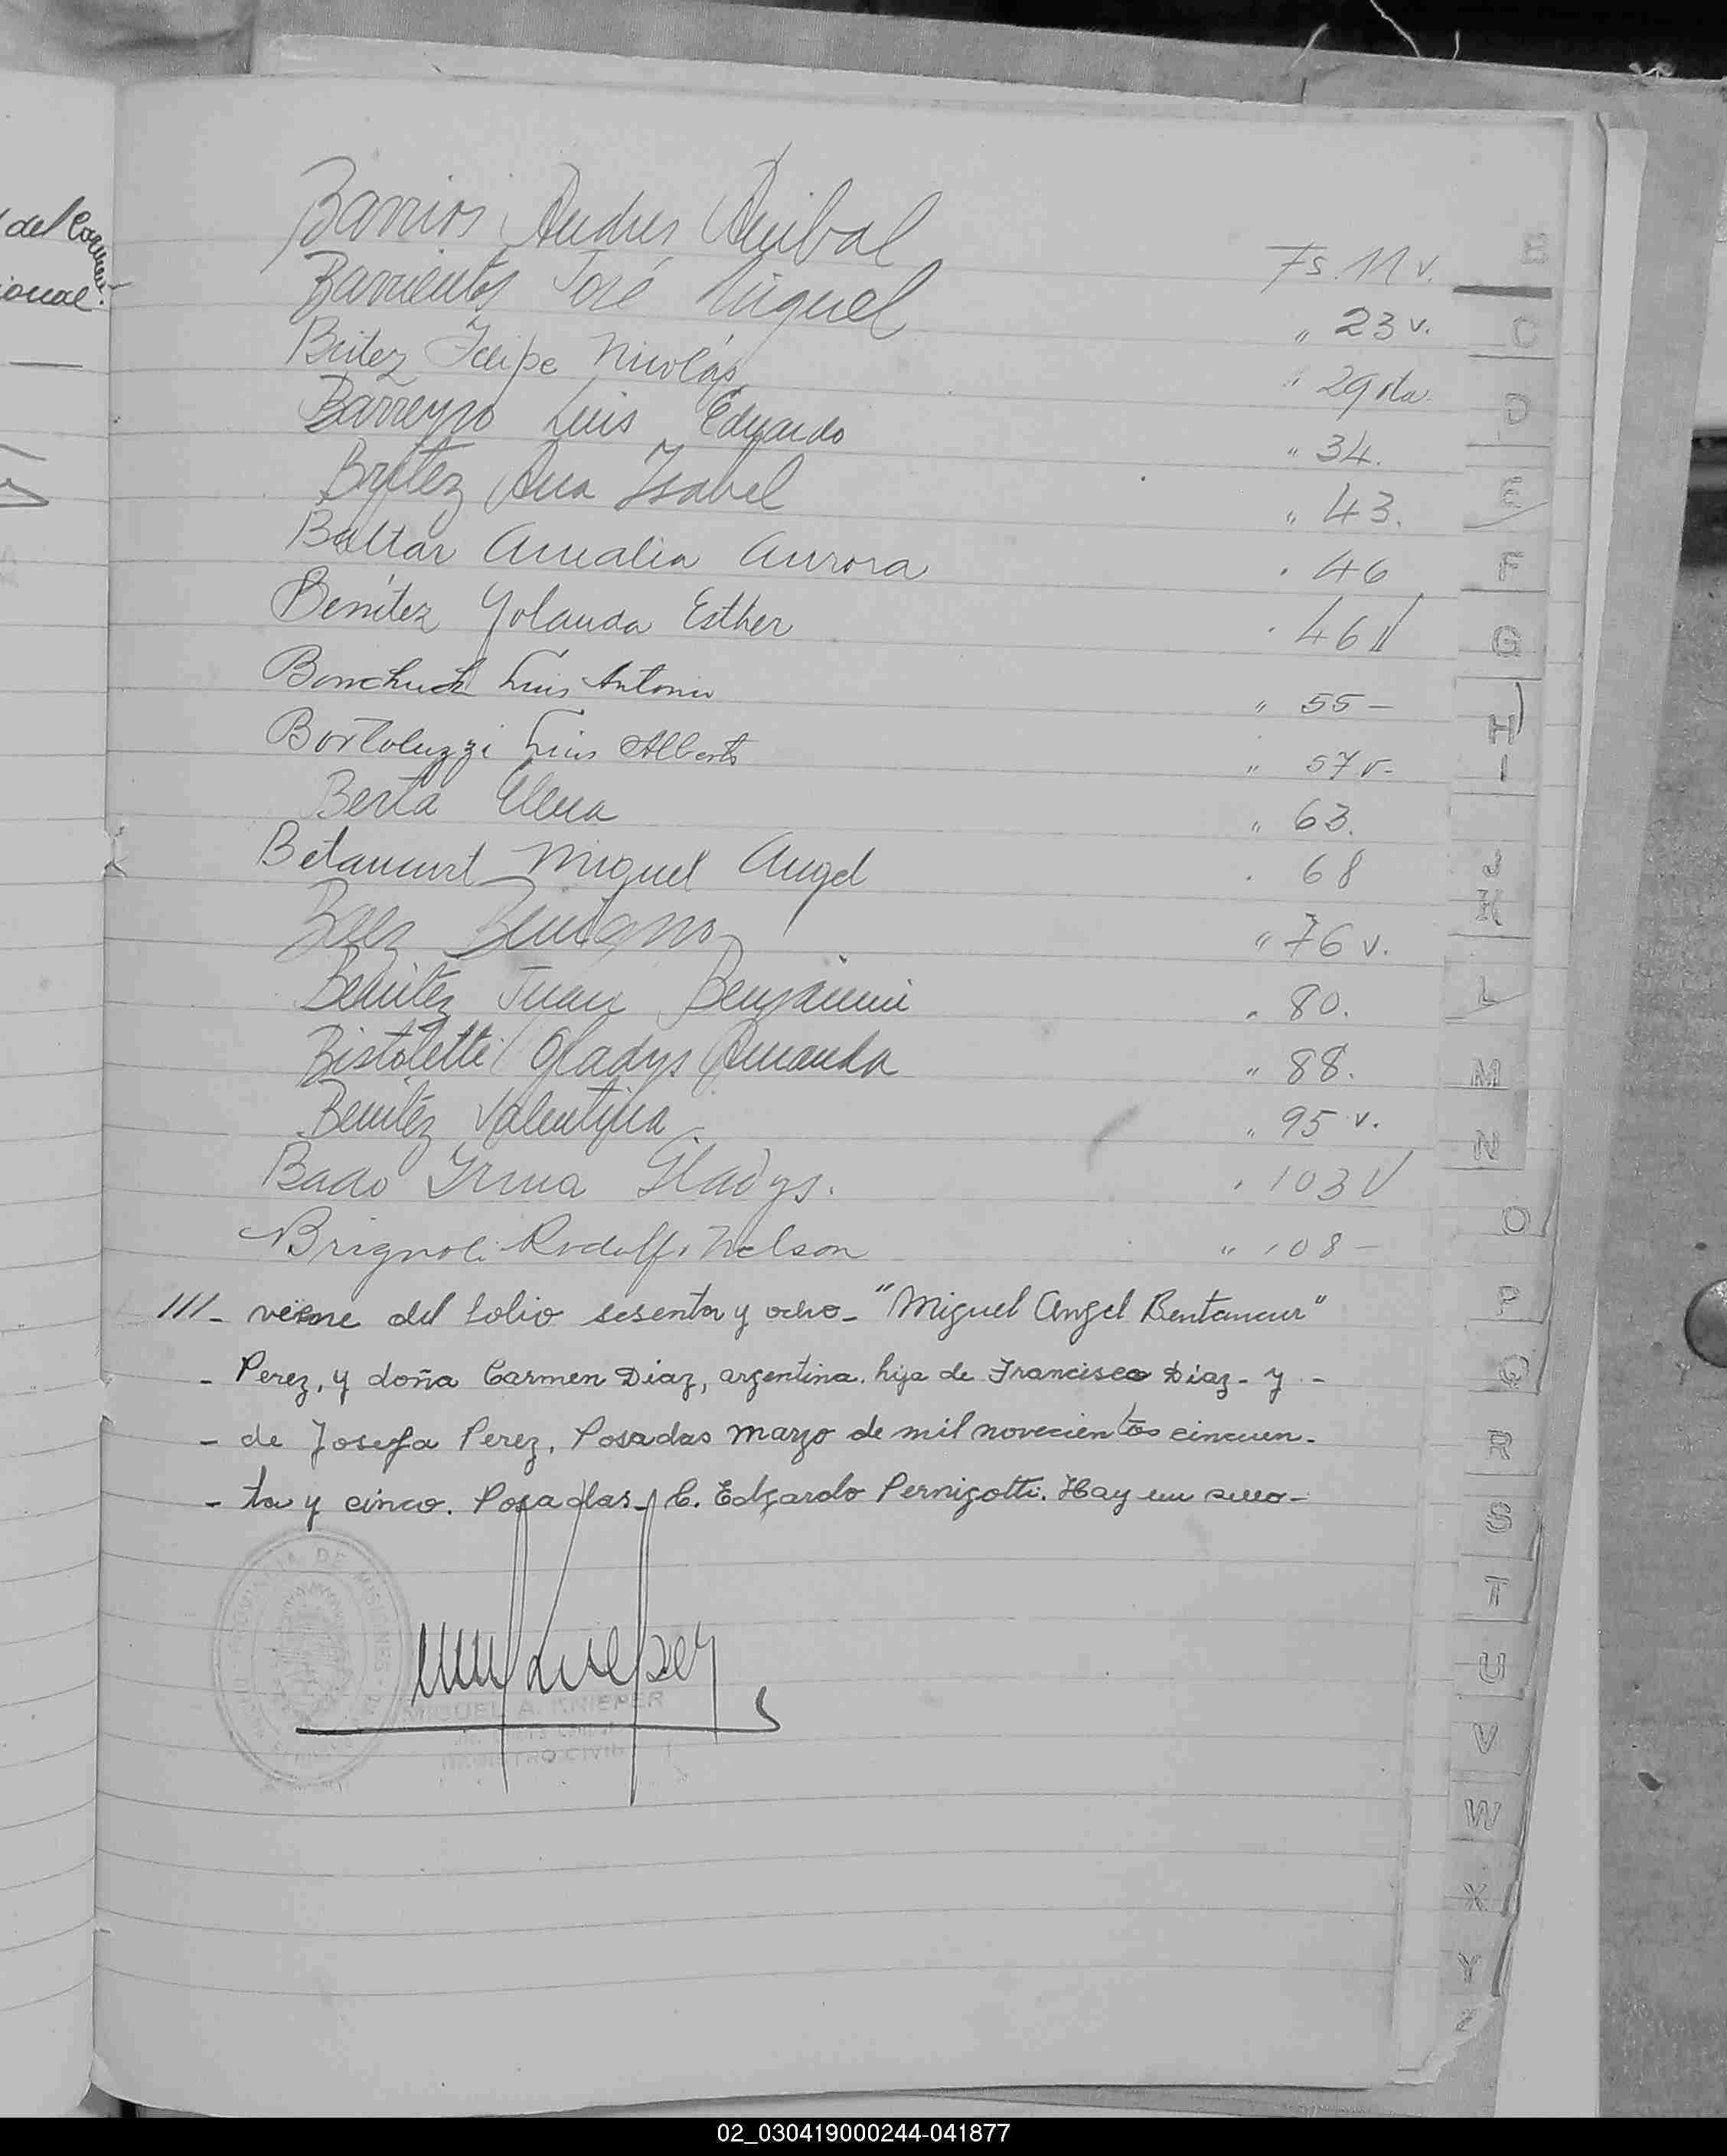 del
Barrios Andres Anibal Fs. 11 v.
Barrientos José Miguel " 23 v.
Britez Felipe Nicolás " 29 vta.
Barreyro Luis Eduardo " 34.
Brytez Ana Isabel " 43.
Baltar Amalia Aurora " 46
Benítez Yolanda Esther " 46 v
Luis Antonio " 55 -
Bortoluzzi Luis Alberto " 57 v-
Berta Elena " 63.
Betancurt Miguel Angel " 68
Baez Benigno " 76 v.
Benitez Juan Benjamin " 80.
Bistoletti Gladys Amanda " 88.
Benitez Valentina " 95 v.
Bado Irma Gladys. " 103 V
Brignoli Rodolfo Nelson " 108 -
///- veine del folio sesenta y ocho- "Miguel Angel Bentancur"
- Perez, y doña Carmen Diaz, argentina. hija de Francisco Diaz- y -
- de Josefa Perez, Posadas marzo de mil novecientos cincuen-
- ta y cinco. Posadas- C. Edgardo Pernigotti. Hay un sello-
PROVINCIA DE MISIONES
MIGUEL A. KNIEPER
REGISTRO CIVIL
B
C
D
E
F
G
H
I
J
K
L
M
N
O
P
Q
R
S
T
U
V
W
X
Y
Z
02_030419000244-041877